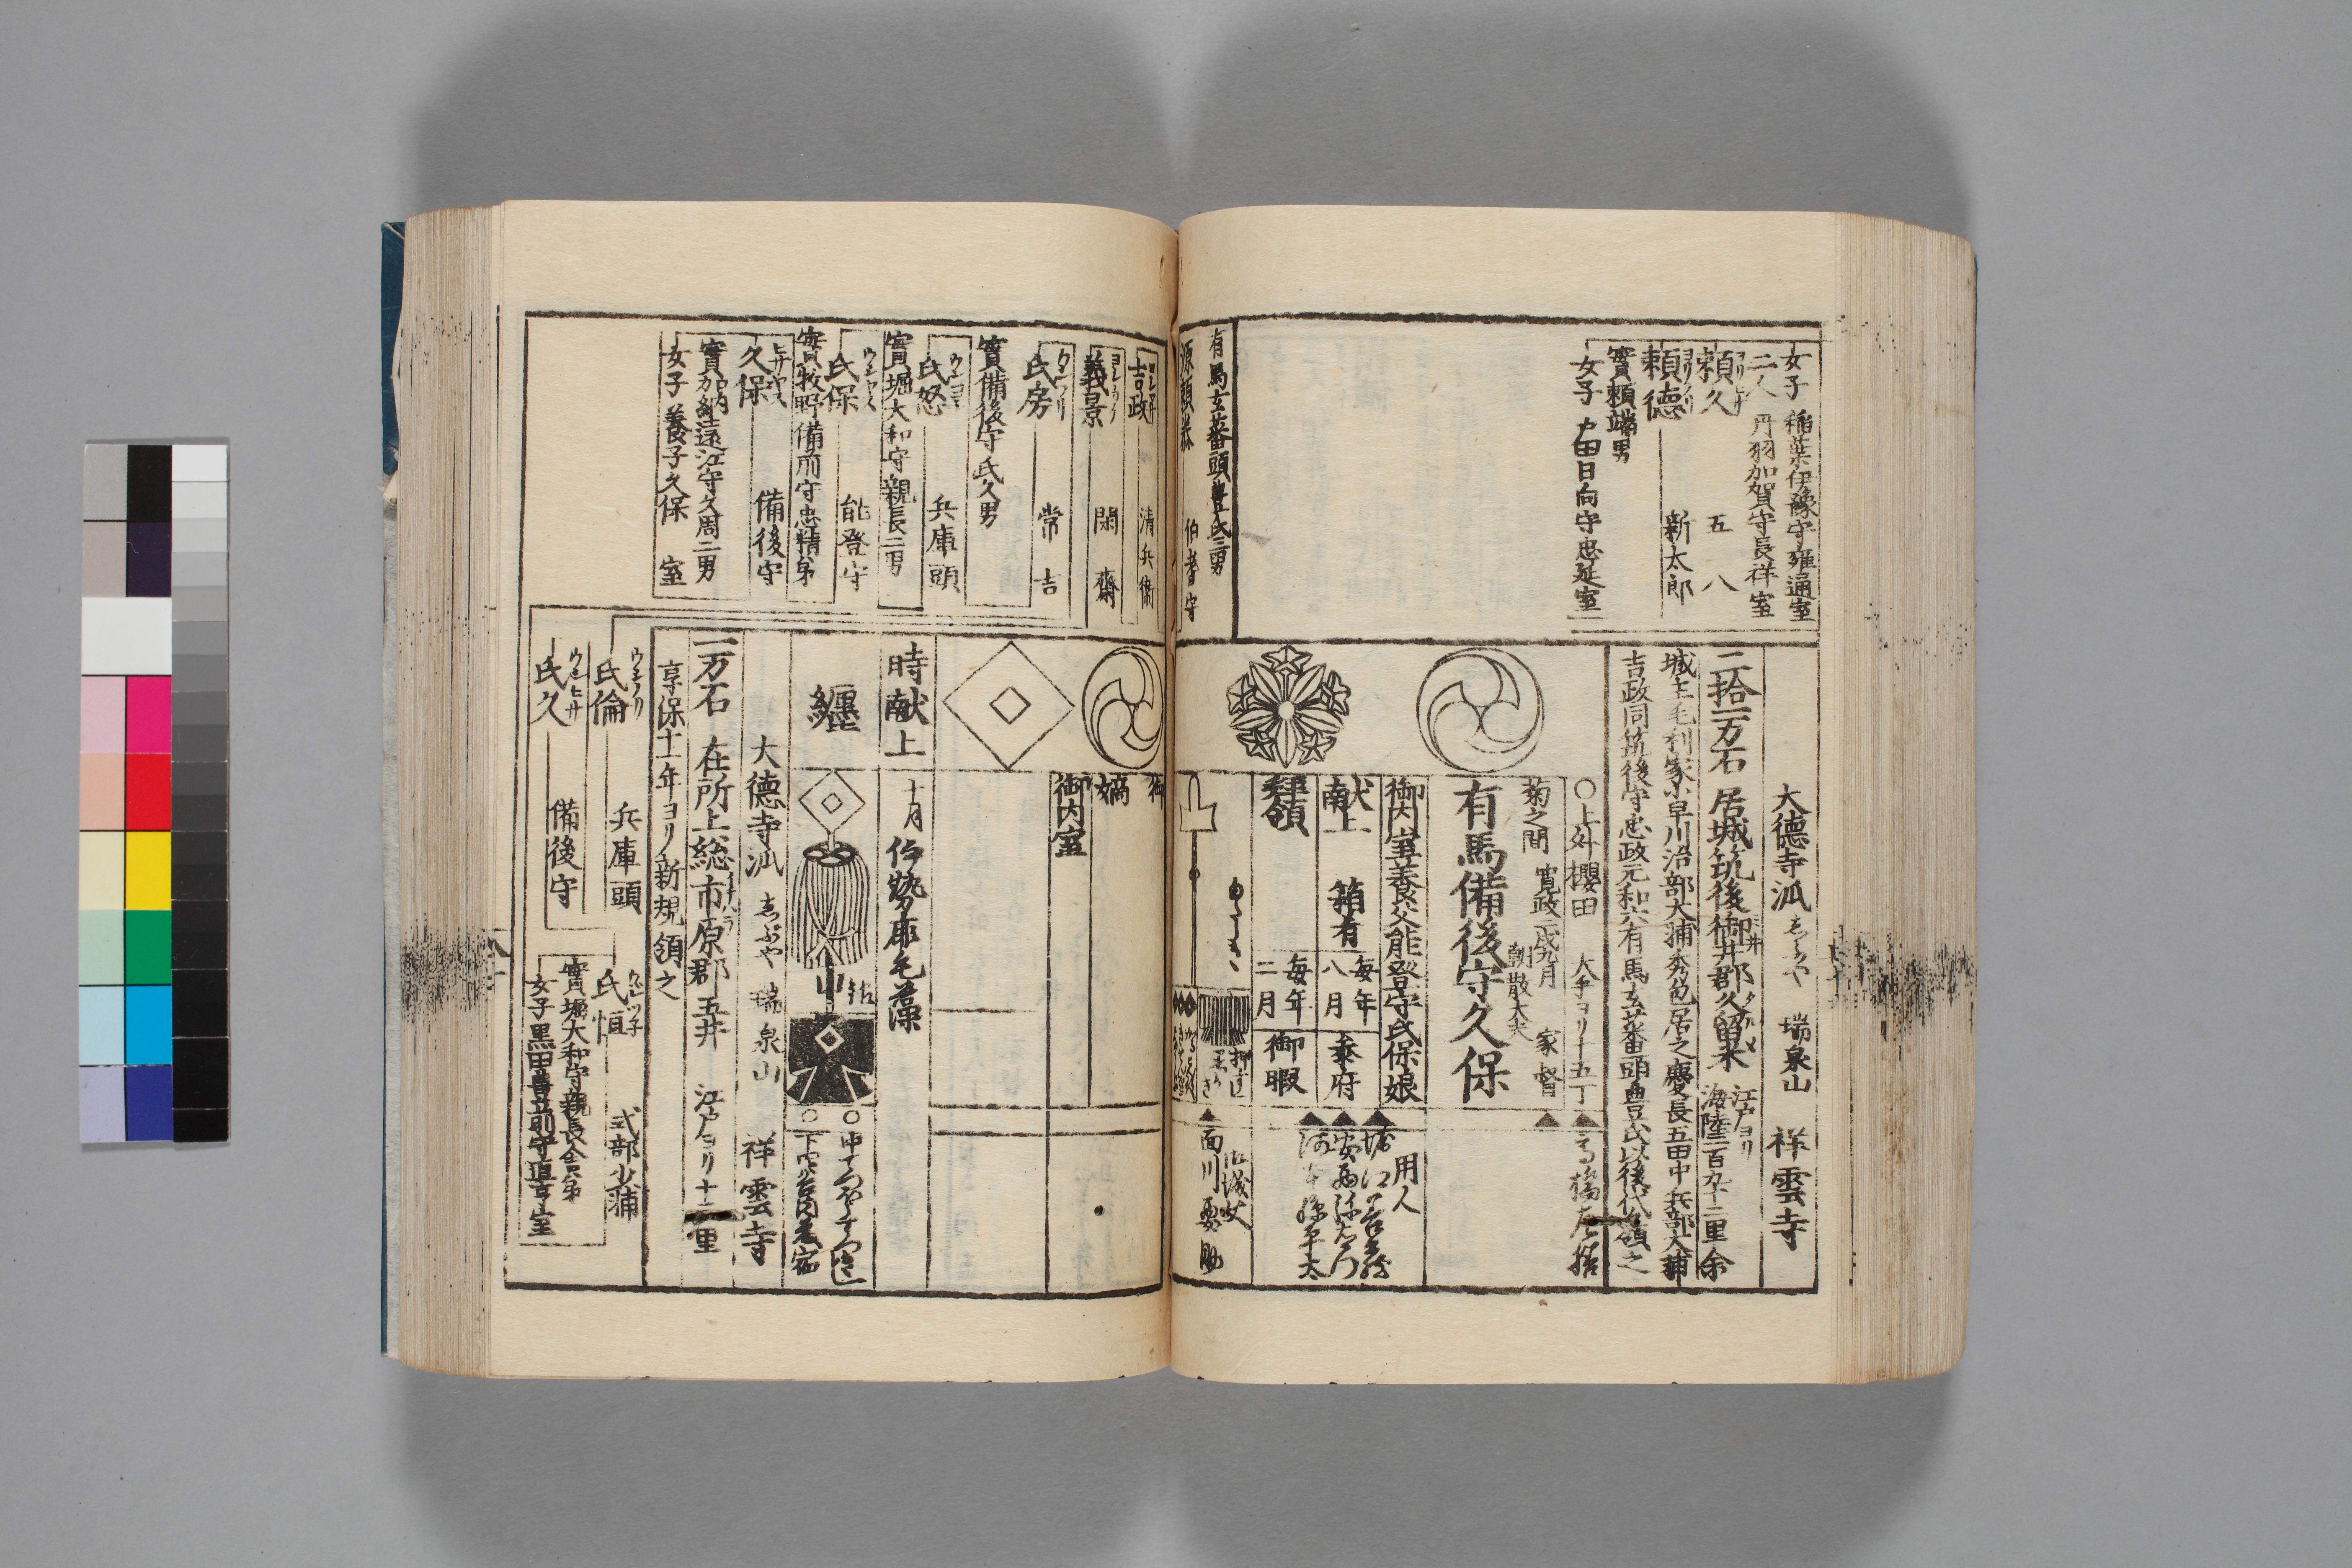 女子 稲葉伊豫守雍通室
二人 丹羽加賀守長祥室
頼久 五八
頼徳 新太郎
實頼端男
女子 戸田日向守忠延室
大徳寺派 瑞泉山 祥雲寺
二拾一万石 居城筑後御井郡久留米 江戸ヨリ海陸二百九十二里余
城主毛利家小早川治部大浦秀包居之慶長五田中兵部大輔
吉政同筑後守忠政元和六有馬玄蕃頭豊氏以後代々領之
○上外櫻田 大手ヨリ十五丁
菊之間 寛政 家督
朝散大夫
有馬備後守久保
御内室養父能登守氏保娘
献上 箱肴 毎年八月 参府
拝領 毎年二月 御暇
用人
面川要助
有馬玄蕃頭豊氏三男
源頼泰 伯耆守
吉政 清兵衛
義景 閑齋
氏房 常吉
實備後守氏久男
氏恕 兵庫頭
實堀大和守親長二男
氏保 能登守
實牧野備前守忠精弟
久保 備後守
實加納遠江守久周二男
女子 養子久保室
御嫡
御内室
時献上 十月 伊勢鹿毛若藻
纏
大徳寺派 瑞泉山 祥雲寺
一万石 在所上総市原郡五井 江戸ヨリ十二里
享保十一年ヨリ新規領之
氏倫 兵庫頭
氏久 備後守
氏恒 式部少浦
實堀大和守親長舎弟
女子 黒田豊前守直亨室